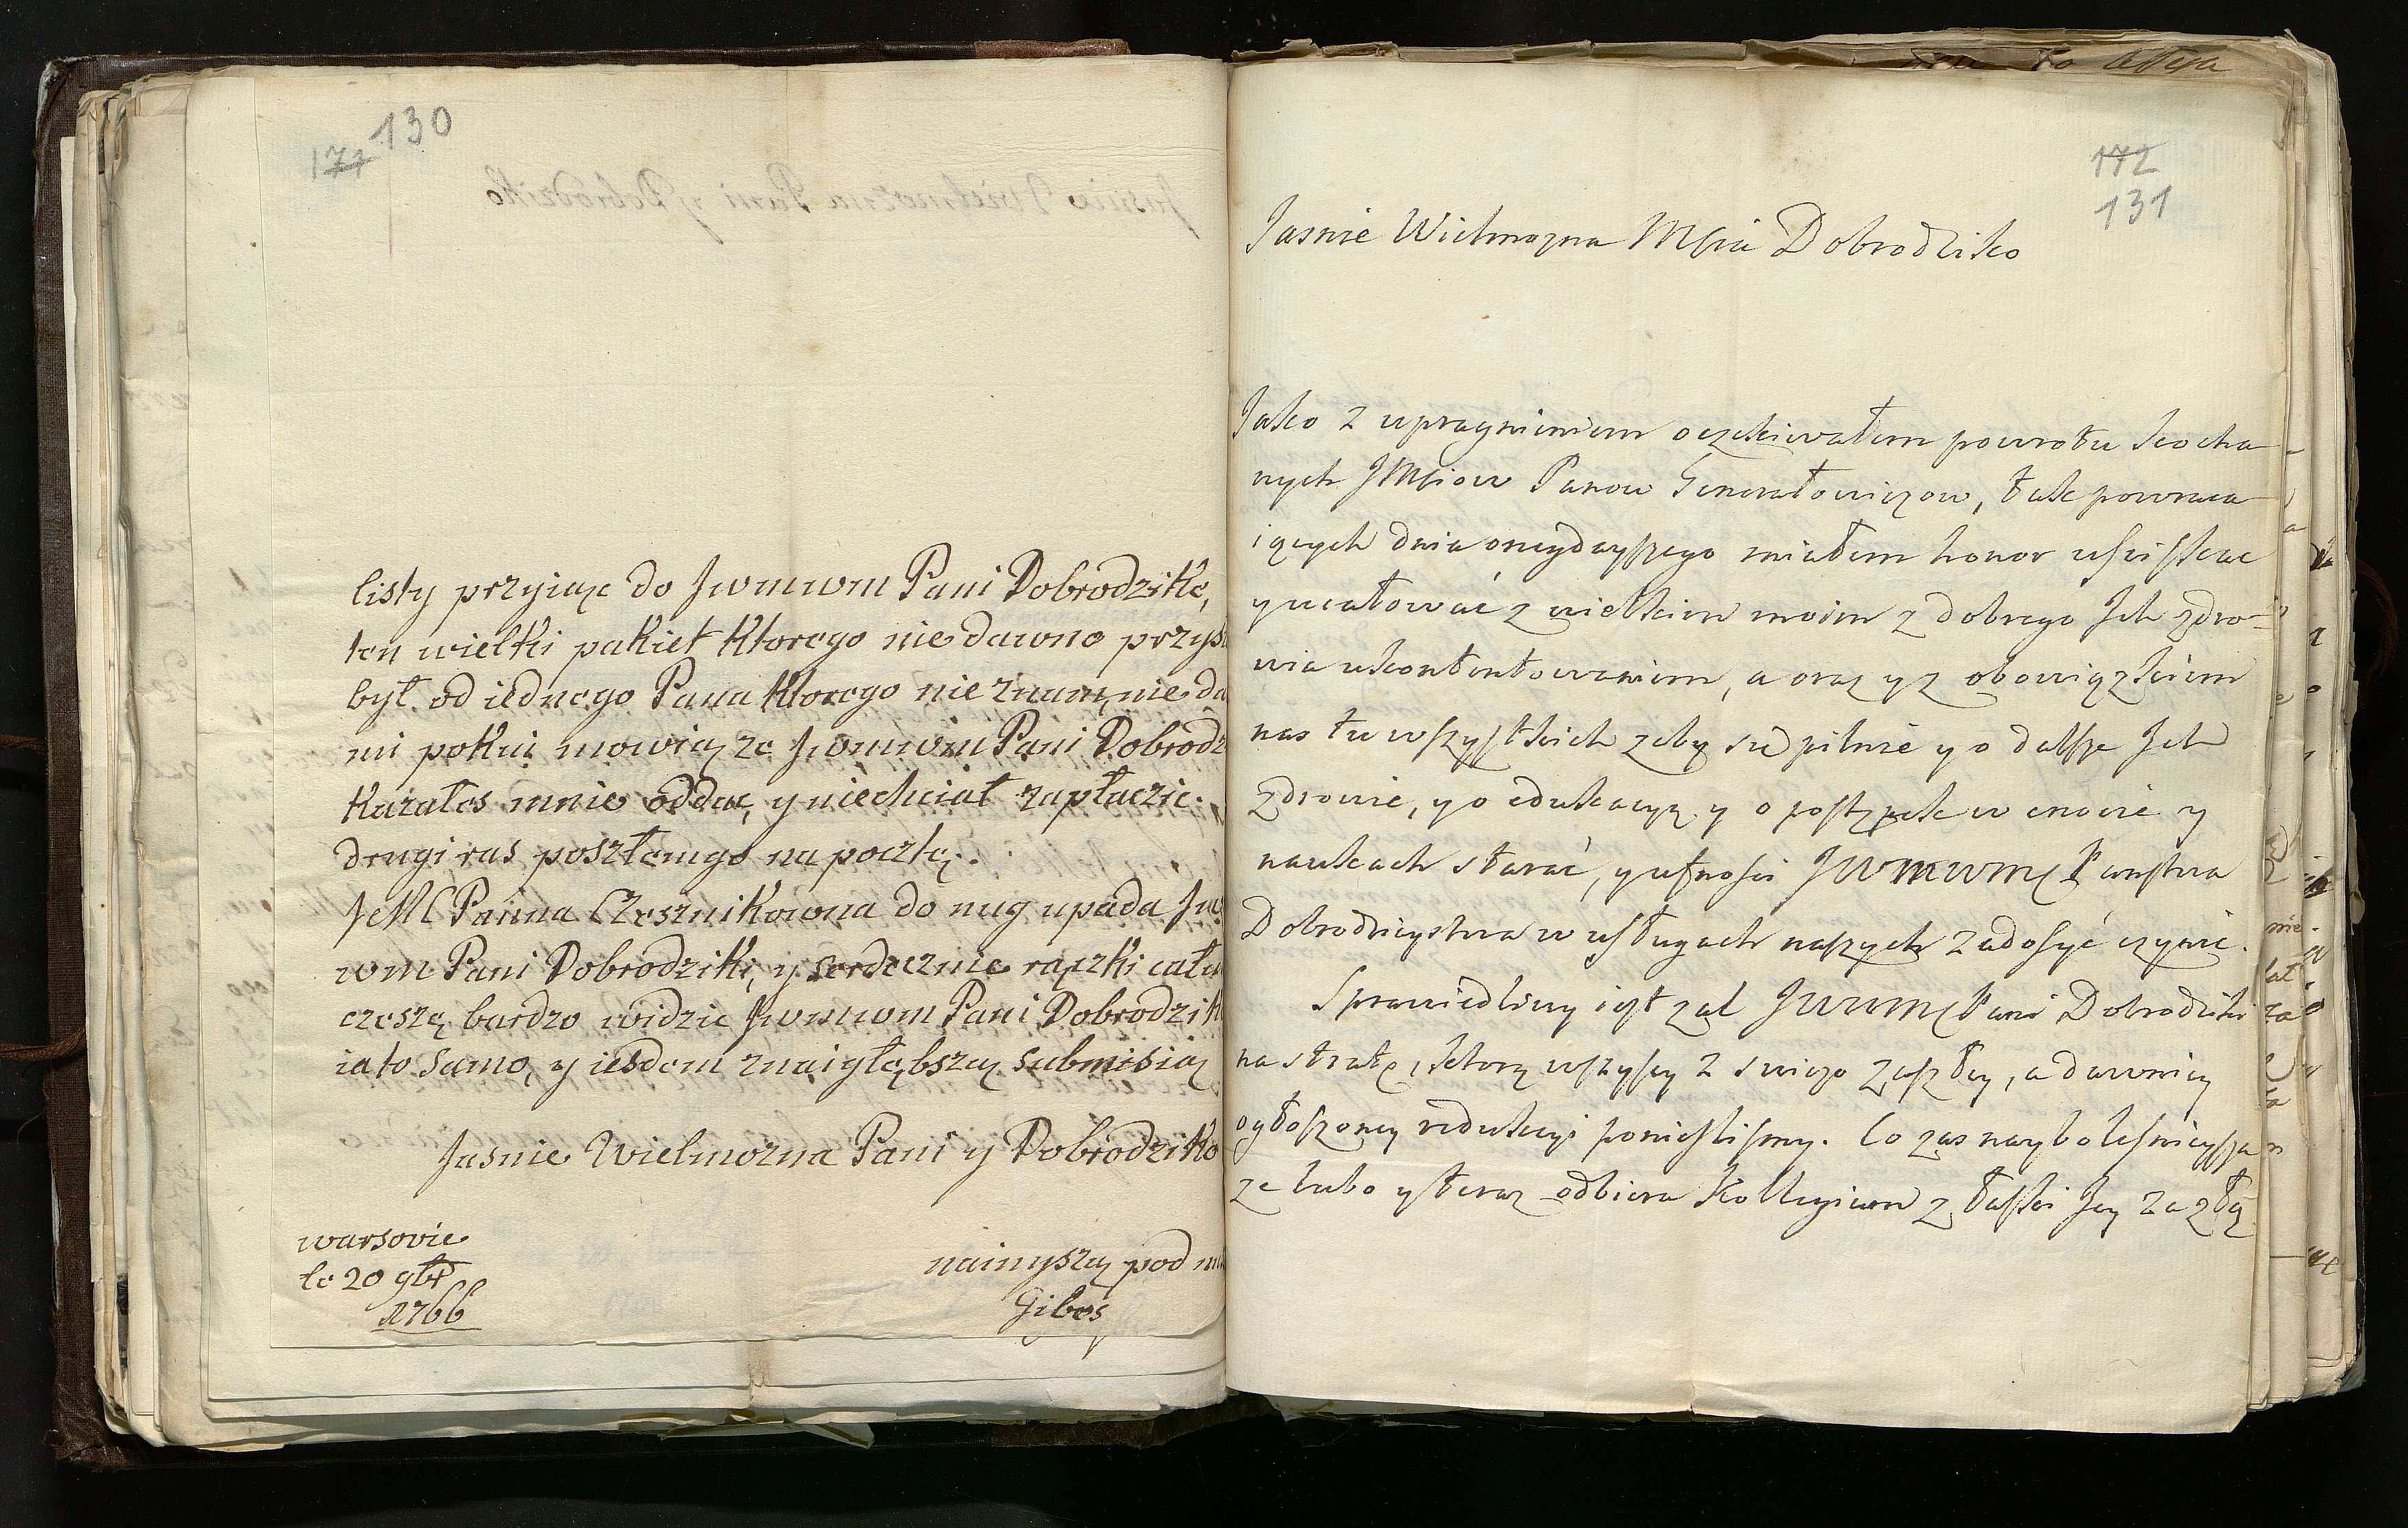 130
171
listy przyiąc do Jwmwm Pani Dobrodzike,
ten wielki pakiet ktorego nie dawno przys
był od iednego Pana ktorego nie znam, nie da
mi pokui mowiąz ze Jwmwm Pani Dobrodz
kazałes mnie oddac, y niechciał zapłaczic.
drugi ras poszłemgo na pocztę.
JeMC Panna Czesznikowna do nug upada Jw
wm Pani Dobrodziki, y serdecznie rączki cału
czeszę bardzo widzic Jwmwm Pani Dobrodzik
ia to samo, y iesdem znaigłębszą submisią
Jasnie Wielmozna Pani y Dobrodziko
warsovie
le 20 9br
1766
nainyszą pod
Gibes
172
131
Jasnie Wielmozna Mścia Dobrodziko
Jako z upragnieniem oczekiwałem powrotu kocha
nych JMściow Panow Generałowiczow, tak powraca
iących dnia onegdayszego miałem honor uściskac
y ucałować z wielkim moim z dobrego Ich zdro=
wia ukontentowaniem, a oraz y z obowiązkiem
nas tu wszystkich zeby się pilnie y o dalsze Ich
zdrowie, y o edukacyą y o postępek w cnocie y
naukach starać, y ufności JWMWMC Państwa
Dobrodzieystwa w usługach naszych zadosyć czynic.
Sprawiedliwy iest zal JWWMC Pani Dobrodziki
na stratę, ktorą wszyscy z swiezo zeszłey, a dawniey
ogłoszoney redukcyi ponieslismy. Co zas naybolesnieysza
ze lubo y teraz odbiera Kollegium z łaski Jey za złą